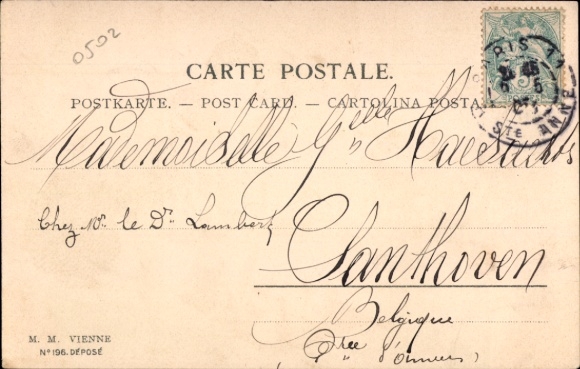 0502
CARTE POSTALE.
POSTKARTE. — POST CARD. — CARTOLINA POSTA
PARIS
STE ANNE
Mademoiselle Glle
Chez Mr. le Dr. Lambert
Santhoven
Belgique
(Pce d'Anvers)
M. M. VIENNE
No 196. DÉPOSÉ